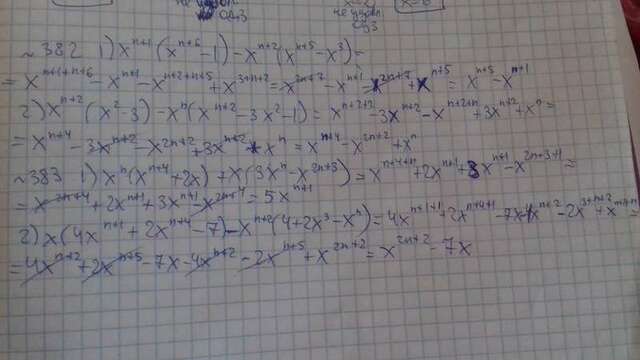 не удов.
ОДЗ
не удов.
ОДЗ
x=6
~382 1) x^{n+1}(x^{n+6}-1)-x^{n+2}(x^{n+5}-x^3)=
=x^{n+1+n+6}-x^{n+1}-x^{n+2+n+5}+x^{3+n+2}=x^{2n+7}-x^{n+1}-x^{2n+7}+x^{n+5}=x^{n+5}-x^{n+1}
2) x^{n+2}(x^2-3)-x^n(x^{n+2}-3x^2-1)=x^{n+2+2}-3x^{n+2}-x^{n+2+n}+3x^{n+2}+x^n=
=x^{n+4}-3x^{n+2}-x^{2n+2}+3x^{n+2}+x^n=x^{n+4}-x^{2n+2}+x^n
~383 1) x^n(x^{n+4}+2x)+x(3x^n-x^{2n+3})=x^{n+4+n}+2x^{n+1}+3x^{n+1}-x^{2n+3+1}=
=x^{2n+4}+2x^{n+1}+3x^{n+1}-x^{2n+4}=5x^{n+1}
2) x(4x^{n+1}+2x^{n+4}-7)-x^{n+2}(4+2x^3-x^n)=4x^{n+1+1}+2x^{n+4+1}-7x-4x^{n+2}-2x^{3+n+2}+x^{n+2+n}=
=4x^{n+2}+2x^{n+5}-7x-4x^{n+2}-2x^{n+5}+x^{2n+2}=x^{2n+2}-7x